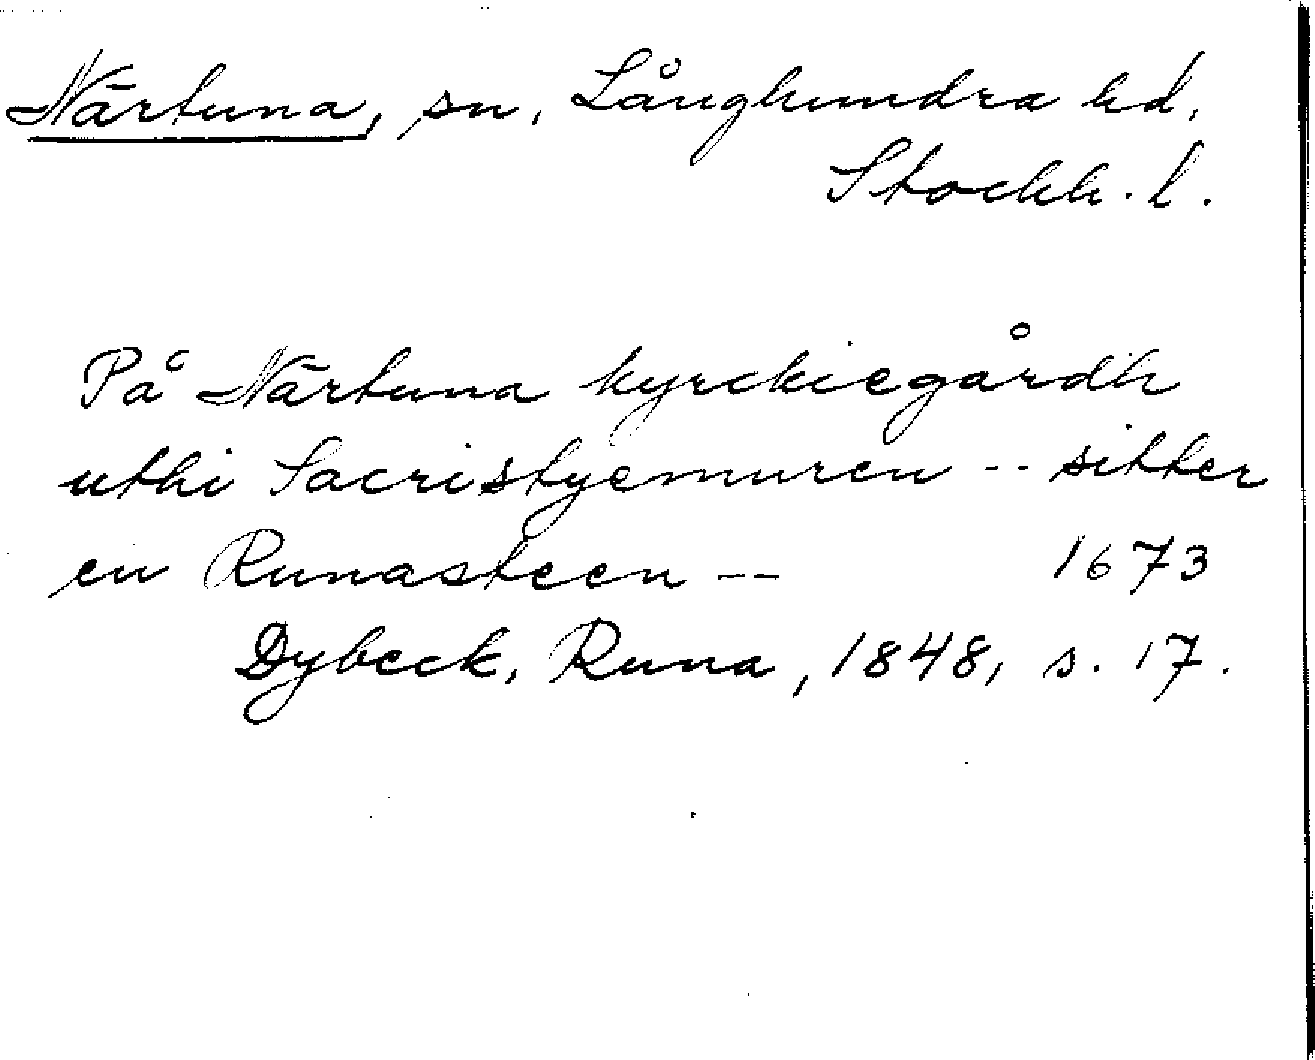 Närtuna, sn, Långhundra hd,
Stockh. l.
På Närtuna kyrckiegårdh
uthi Sacristyemuren -- sitter
en Runasteen -- 1673
Dybeck, Runa, 1848, s. 17.